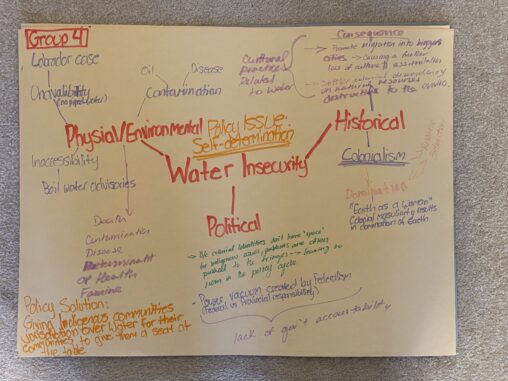 Group 4
Labrador case
Unavailability
(no good water)
Oil
Disease
Contamination
Cultural
practices
related
to water
Consequence
→ Promote migration into bigger
cities → Causing a further
loss of culture & assimilation
→ Settler colonial dependency
on natural resources
destructive to the
Physial/Environmental
Policy Issue:
Self-determination
Historical
Inaccessibility
Boil water advisories
Water Insecurity
Colonialism
Domination
"Earth as a Woman"
Colonial masculinity results
in domination of Earth
Political
Death
Contamination
Disease
Determinant
of Health
Famine
- B/c colonial identities don't have "space"
for indigenous issues, problems are often
pushed to the fringes → leaving no
room in the policy cycle
- Power vacuum created by Federalism
(Federal vs Provincial responsibility)
lack of gov't accountability
Policy Solution:
Giving Indigenous communities
jurisdiction over water for their
communities to give them a seat at
the table